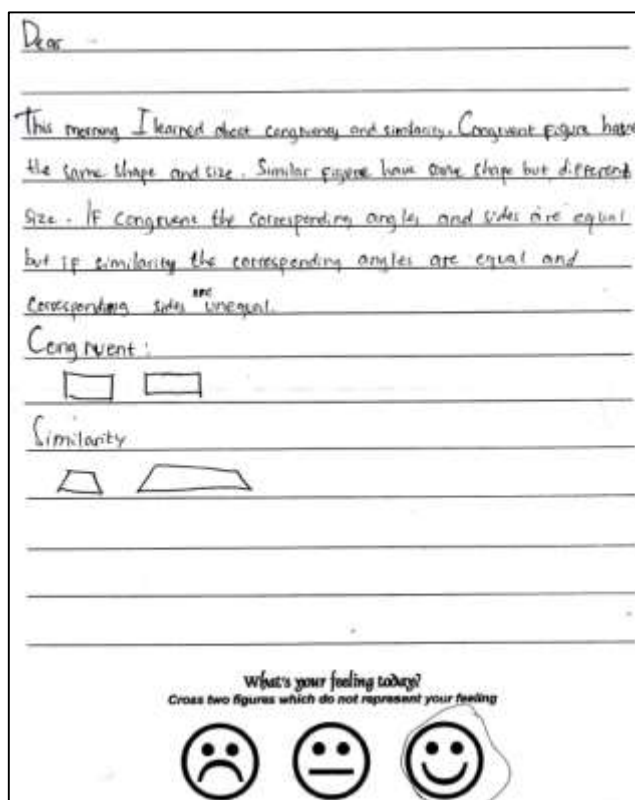 Dear
This morning I learned about congruency and similarity. Congruent figure have
the same shape and size. Similar figure have same shape but different
size. If congruent the corresponding angles and sides are equal
but if similarity the corresponding angles are equal and
corresponding sides are unequal.
Congruent :
Similarity
What's your feeling today?
Cross two figures which do not represent your feeling